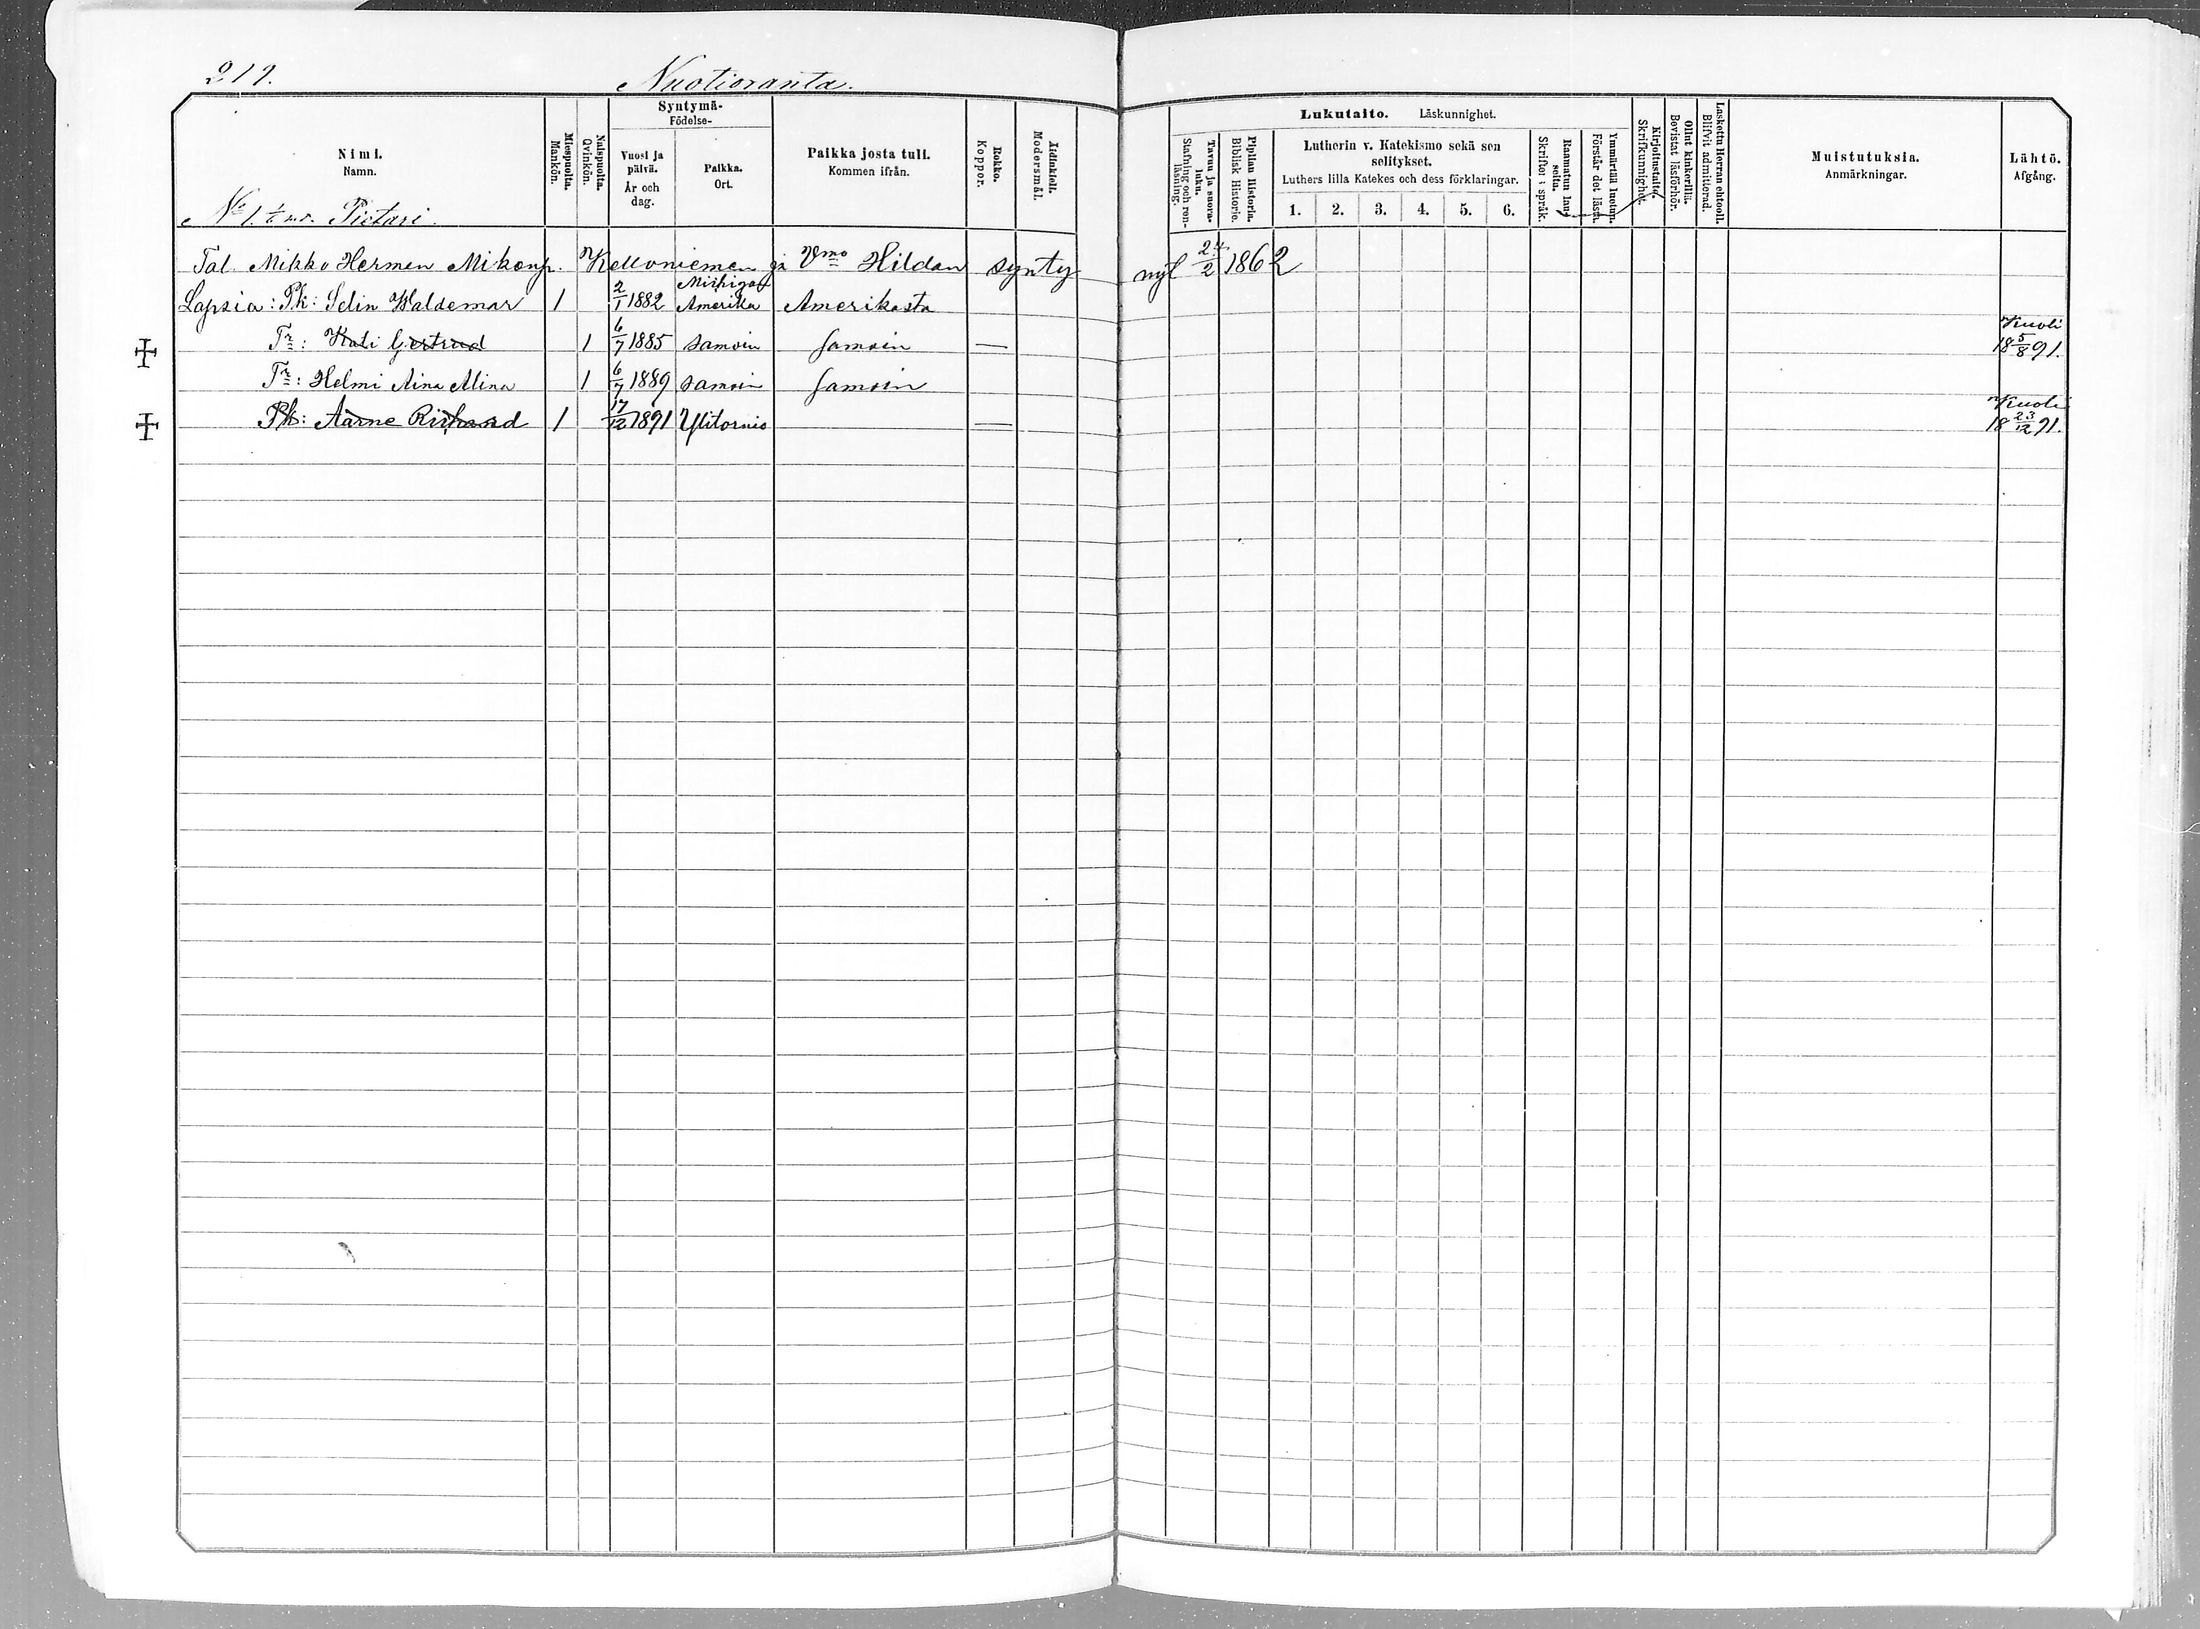 219.
Nuotioranta.
Nimi.
Namn.
Miespuolta.
Mankön.
Naispuolta.
Qvinkön.
Syntymä-
Födelse-
Vuosi ja
päivä.
År och
dag.
Paikka.
Ort.
Paikka josta tuli.
Kommen ifrån.
Rokko.
Koppor.
Äidinkieli.
Modersmål.
Lukutaito. Läskunnighet.
Tavuu ja suora-
luku.
Stafning och ren-
läsning.
Piplian Historia.
Biblisk Historie.
Lutherin v. Katekismo sekä sen
selitykset.
Luthers lilla Katekes och dess förklaringar.
1. 2. 3. 4. 5. 6.
Raamatun lau-
seita.
Skriftens språk.
Ymmärtää luetun.
Förstår det lästa.
Kirjoitustaito.
Skrifkunnighet.
Ollut kinkerillä.
Bevistat läsförhör.
Laskettu Herran ehtooll.
Blifvit admitterad.
Muistutuksia.
Anmärkningar.
Lähtö.
Afgång.
No 1. Pietari.
Tal. Mikko Herman Mikonp. Kelloniemen ja Vmo Hildan synty nyt 24/2 1862
Lapsia: Pk: Selin Waldemar 1 2/1 1882 Mishigan Amerika Amerikasta
Tr: Kati Gertrud 1 6/7 1885 samoin samoin — Kuoli 18 5/8 91.
Tr: Helmi Aina Alina 1 6/7 1889 samoin samoin
Pk: Aarne Richard 1 17/12 1891 Ylitornio — Kuoli 18 23/12 91.